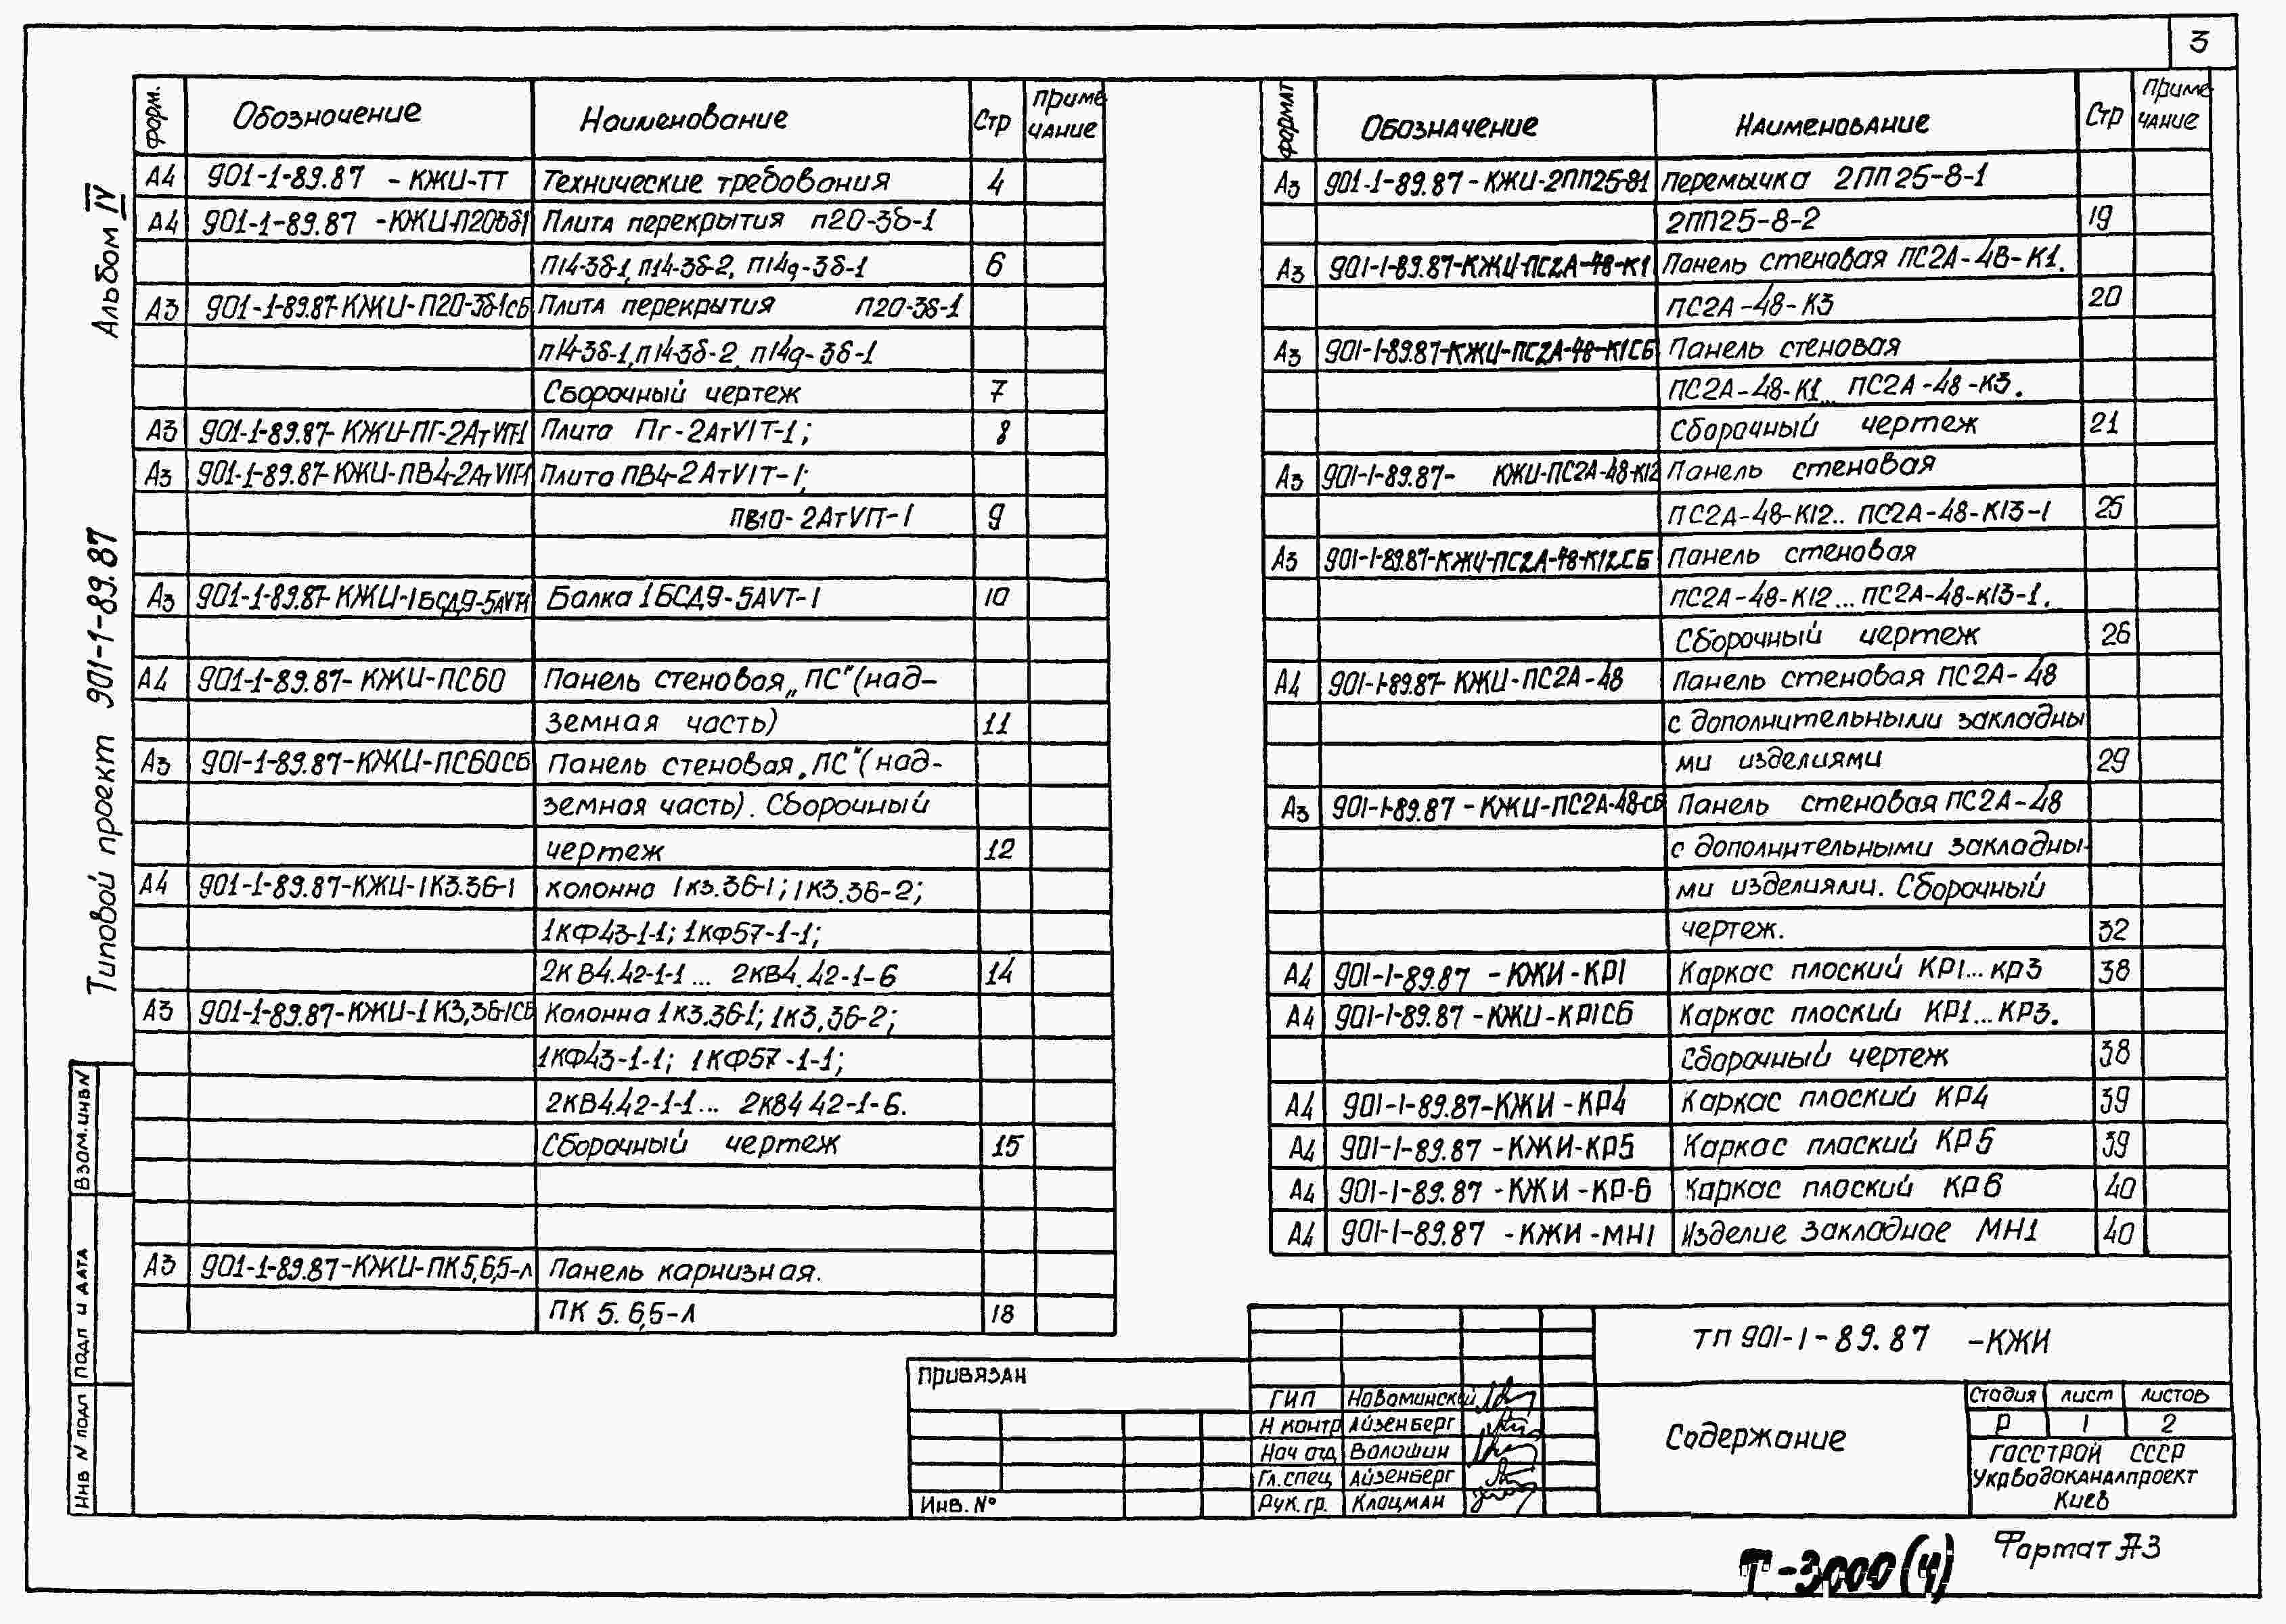 3
Альбом IV
Типовой проект 901-1-89.87
Форм. Обозначение Наименование Стр Приме чание
А4 901-1-89.87 -КЖИ-ТТ Технические требования 4
А4 901-1-89.87 -КЖИ-П20-3б1 Плита перекрытия П20-3б-1
П14-3б-1, П14-3б-2, П14д-3б-1 6
А3 901-1-89.87-КЖИ-П20-3б-1СБ Плита перекрытия П20-3б-1
П14-3б-1, П14-3б-2, П14д-3б-1
Сборочный чертеж 7
А3 901-1-89.87-КЖИ-ПГ-2АтVIТ-1 Плита Пг-2АтVIТ-1; 8
А3 901-1-89.87-КЖИ-ПВ4-2АтVIТ-1 Плита ПВ4-2АтVIТ-1;
ПВ10-2АтVIТ-1 9
А3 901-1-89.87-КЖИ-1БСД9-5АVТ-1 Балка 1БСД9-5АVТ-1 10
А4 901-1-89.87-КЖИ-ПС60 Панель стеновая „ПС"(над-
земная часть) 11
А3 901-1-89.87-КЖИ-ПС60СБ Панель стеновая „ПС"(над-
земная часть). Сборочный
чертеж 12
А4 901-1-89.87-КЖИ-1К3.36-1 колонна 1К3.36-1; 1К3.36-2;
1КФ43-1-1; 1КФ57-1-1;
2КВ4.42-1-1... 2КВ4.42-1-6 14
А3 901-1-89.87-КЖИ-1К3,36-1СБ Колонна 1К3.36-1; 1К3,36-2;
1КФ43-1-1; 1КФ57-1-1;
2КВ4.42-1-1... 2К84 42-1-6.
Сборочный чертеж 15
А3 901-1-89.87-КЖИ-ПК5,6,5-Л Панель карнизная.
ПК 5.6,5-Л 18
формат Обозначение Наименование Стр Приме чание
А3 901-1-89.87-КЖИ-2ПП25-81 перемычка 2ПП25-8-1
2ПП25-8-2 19
А3 901-1-89.87-КЖИ-ПС2А-48-К1 Панель стеновая ПС2А-48-К1.
ПС2А-48-К3 20
А3 901-1-89.87-КЖИ-ПС2А-48-К1СБ Панель стеновая
ПС2А-48-К1... ПС2А-48-К3.
Сборочный чертеж 21
А3 901-1-89.87- КЖИ-ПС2А-48-К12 Панель стеновая
ПС2А-48-К12.. ПС2А-48-К13-1 25
А3 901-1-89.87-КЖИ-ПС2А-48-К12СБ Панель стеновая
ПС2А-48-К12... ПС2А-48-К13-1.
Сборочный чертеж 26
А4 901-1-89.87-КЖИ-ПС2А-48 Панель стеновая ПС2А-48
с дополнительными закладны
ми изделиями 29
А3 901-1-89.87 -КЖИ-ПС2А-48-СБ Панель стеновая ПС2А-48
с дополнительными закладны-
ми изделиями. Сборочный
чертеж. 32
А4 901-1-89.87 -КЖИ-КР1 Каркас плоский КР1...КР3 38
А4 901-1-89.87 -КЖИ-КР1СБ Каркас плоский КР1...КР3.
Сборочный чертеж 38
А4 901-1-89.87-КЖИ-КР4 Каркас плоский КР4 39
А4 901-1-89.87 -КЖИ-КР5 Каркас плоский КР5 39
А4 901-1-89.87 -КЖИ-КР-6 Каркас плоский КР6 40
А4 901-1-89.87 -КЖИ-МН1 Изделие закладное МН1 40
Взам.инв.N
Подп и дата
Инв N подл
Привязан
Инв. №
ТП 901-1-89.87 -КЖИ
ГИП Новоминский
Н контр Айзенберг
Нач отд Волошин
Гл.спец Айзенберг
Рук.гр. Клоцман
Содержание
Стадия лист листов
Р 1 2
Госстрой СССР
Укрводоканалпроект
Киев
Т-3000(4)
Формат А3